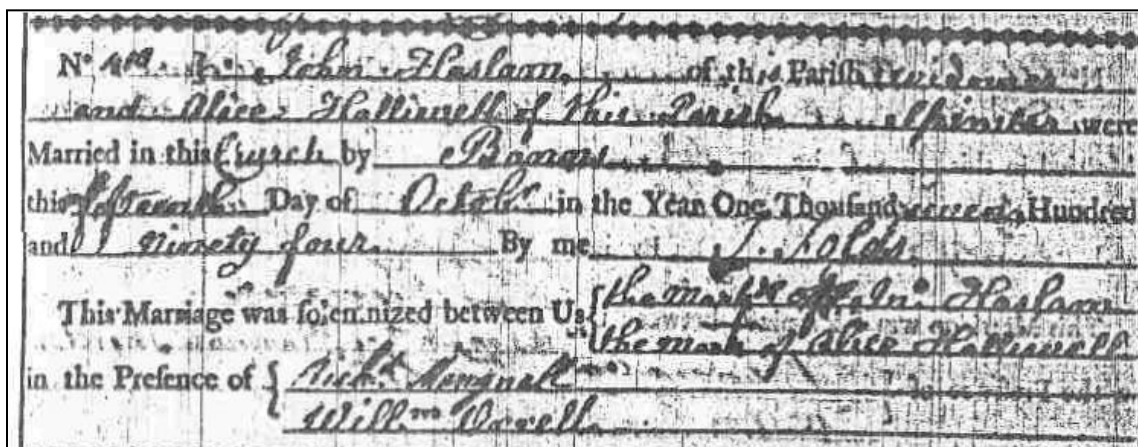 No John Haslam of this Parish Widower
and Alice Halliwell of this Parish Spinster were
Married in this Church by Banns
this fifteenth Day of Octobr in the Year One Thousand seven Hundred
and Ninety four By me J. Folds
This Marriage was solemnized between Us { the mark of Jno Haslam
the mark of Alice Halliwell
in the Presence of { Richd Mangnall
Willm Orrell